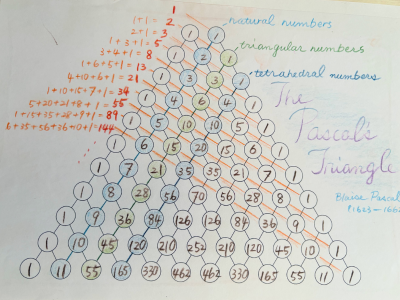 1
1+1= 2
natural numbers
2+1= 3
1 1
1+3+1= 5
triangular numbers
1 2 1
3+4+1= 8
1+6+5+1= 13
tetrahedral numbers
1 3 3 1
4+10+6+1= 21
1+10+15+7+1= 34
The
1 4 6 4 1
5+20+21+8+1= 55
1+15+35+28+9+1= 89
1 5 10 10 5 1
6+35+56+36+10+1= 144
Pascal's
1 6 15 20 15 6 1
Triangle
1 7 21 35 35 21 7 1
1 8 28 56 70 56 28 8 1
Blaise Pascal
1 9 36 84 126 126 84 36 9 1
1 10 45 120 210 252 210 120 45 10 1
1 11 55 165 330 462 462 330 165 55 11 1